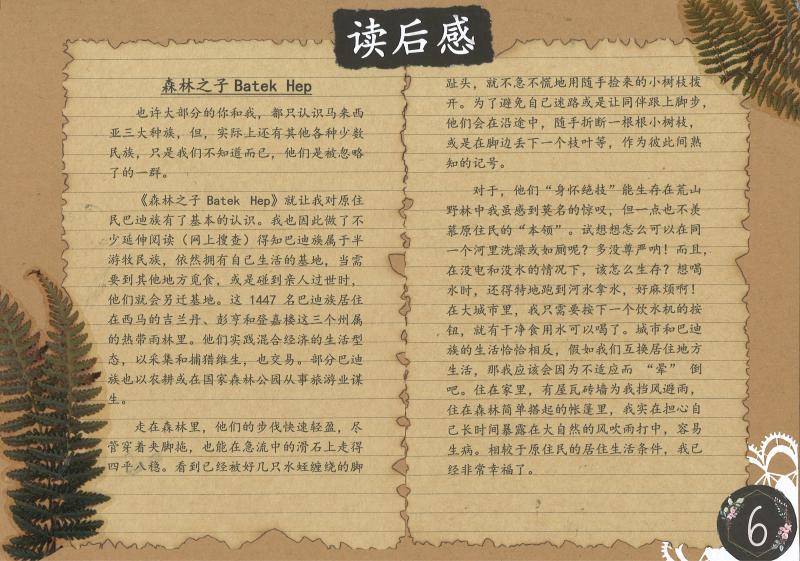 读后感
森林之子 Batek Hep
也许大部分的你和我，都只认识马来西
亚三大种族，但，实际上还有其他各种少数
民族，只是我们不知道而已，他们是被忽略
了的一群。
《森林之子 Batek Hep》就让我对原住
民巴迪族有了基本的认识。我也因此做了不
少延伸阅读（网上搜查）得知巴迪族属于半
游牧民族，依然拥有自己生活的基地，当需
要到其他地方觅食，或是碰到亲人过世时，
他们就会另迁基地。这 1447 名巴迪族居住
在西马的吉兰丹、彭亨和登嘉楼这三个州属
的热带雨林里。他们实践混合经济的生活型
态，以采集和捕猎维生，也交易。部分巴迪
族也以农耕或在国家森林公园从事旅游业谋
生。
走在森林里，他们的步伐快速轻盈，尽
管穿着夹脚拖，也能在急流中的滑石上走得
四平八稳。看到已经被好几只水蛭缠绕的脚
趾头，就不急不慌地用随手捡来的小树枝拨
开。为了避免自己迷路或是让同伴跟上脚步，
他们会在沿途中，随手折断一根根小树枝，
或是在脚边丢下一个枝叶等，作为彼此间熟
知的记号。
对于，他们“身怀绝技”能生存在荒山
野林中我虽感到莫名的惊叹，但一点也不羡
慕原住民的“本领”。试想想怎么可以在同
一个河里洗澡或如厕呢？多没尊严呐！而且，
在没电和没水的情况下，该怎么生存？想喝
水时，还得特地跑到河水拿水，好麻烦啊！
在大城市里，我只需要按下一个饮水机的按
钮，就有干净食用水可以喝了。城市和巴迪
族的生活恰恰相反，假如我们互换居住地方
生活，那我应该会因为不适应而 “晕” 倒
吧。住在家里，有屋瓦砖墙为我挡风避雨，
住在森林简单搭起的帐篷里，我实在担心自
己长时间暴露在大自然的风吹雨打中，容易
生病。相较于原住民的居住生活条件，我已
经非常幸福了。
6